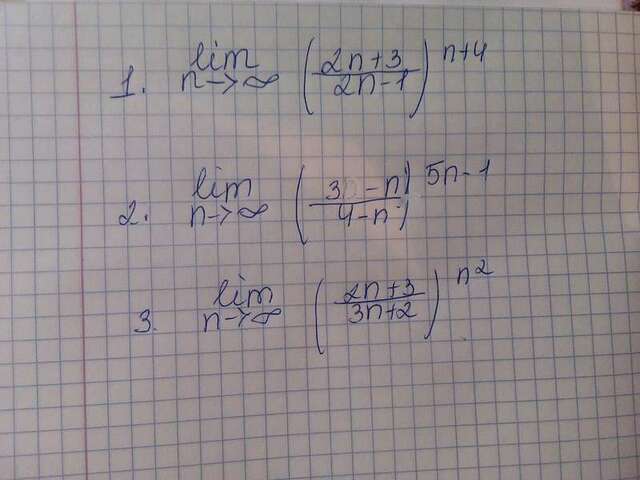 1. lim n→∞ (2n+3 / 2n-1)^n+4
2. lim n→∞ (3-n / 4-n)^5n-1
3. lim n→∞ (2n+3 / 3n+2)^n²